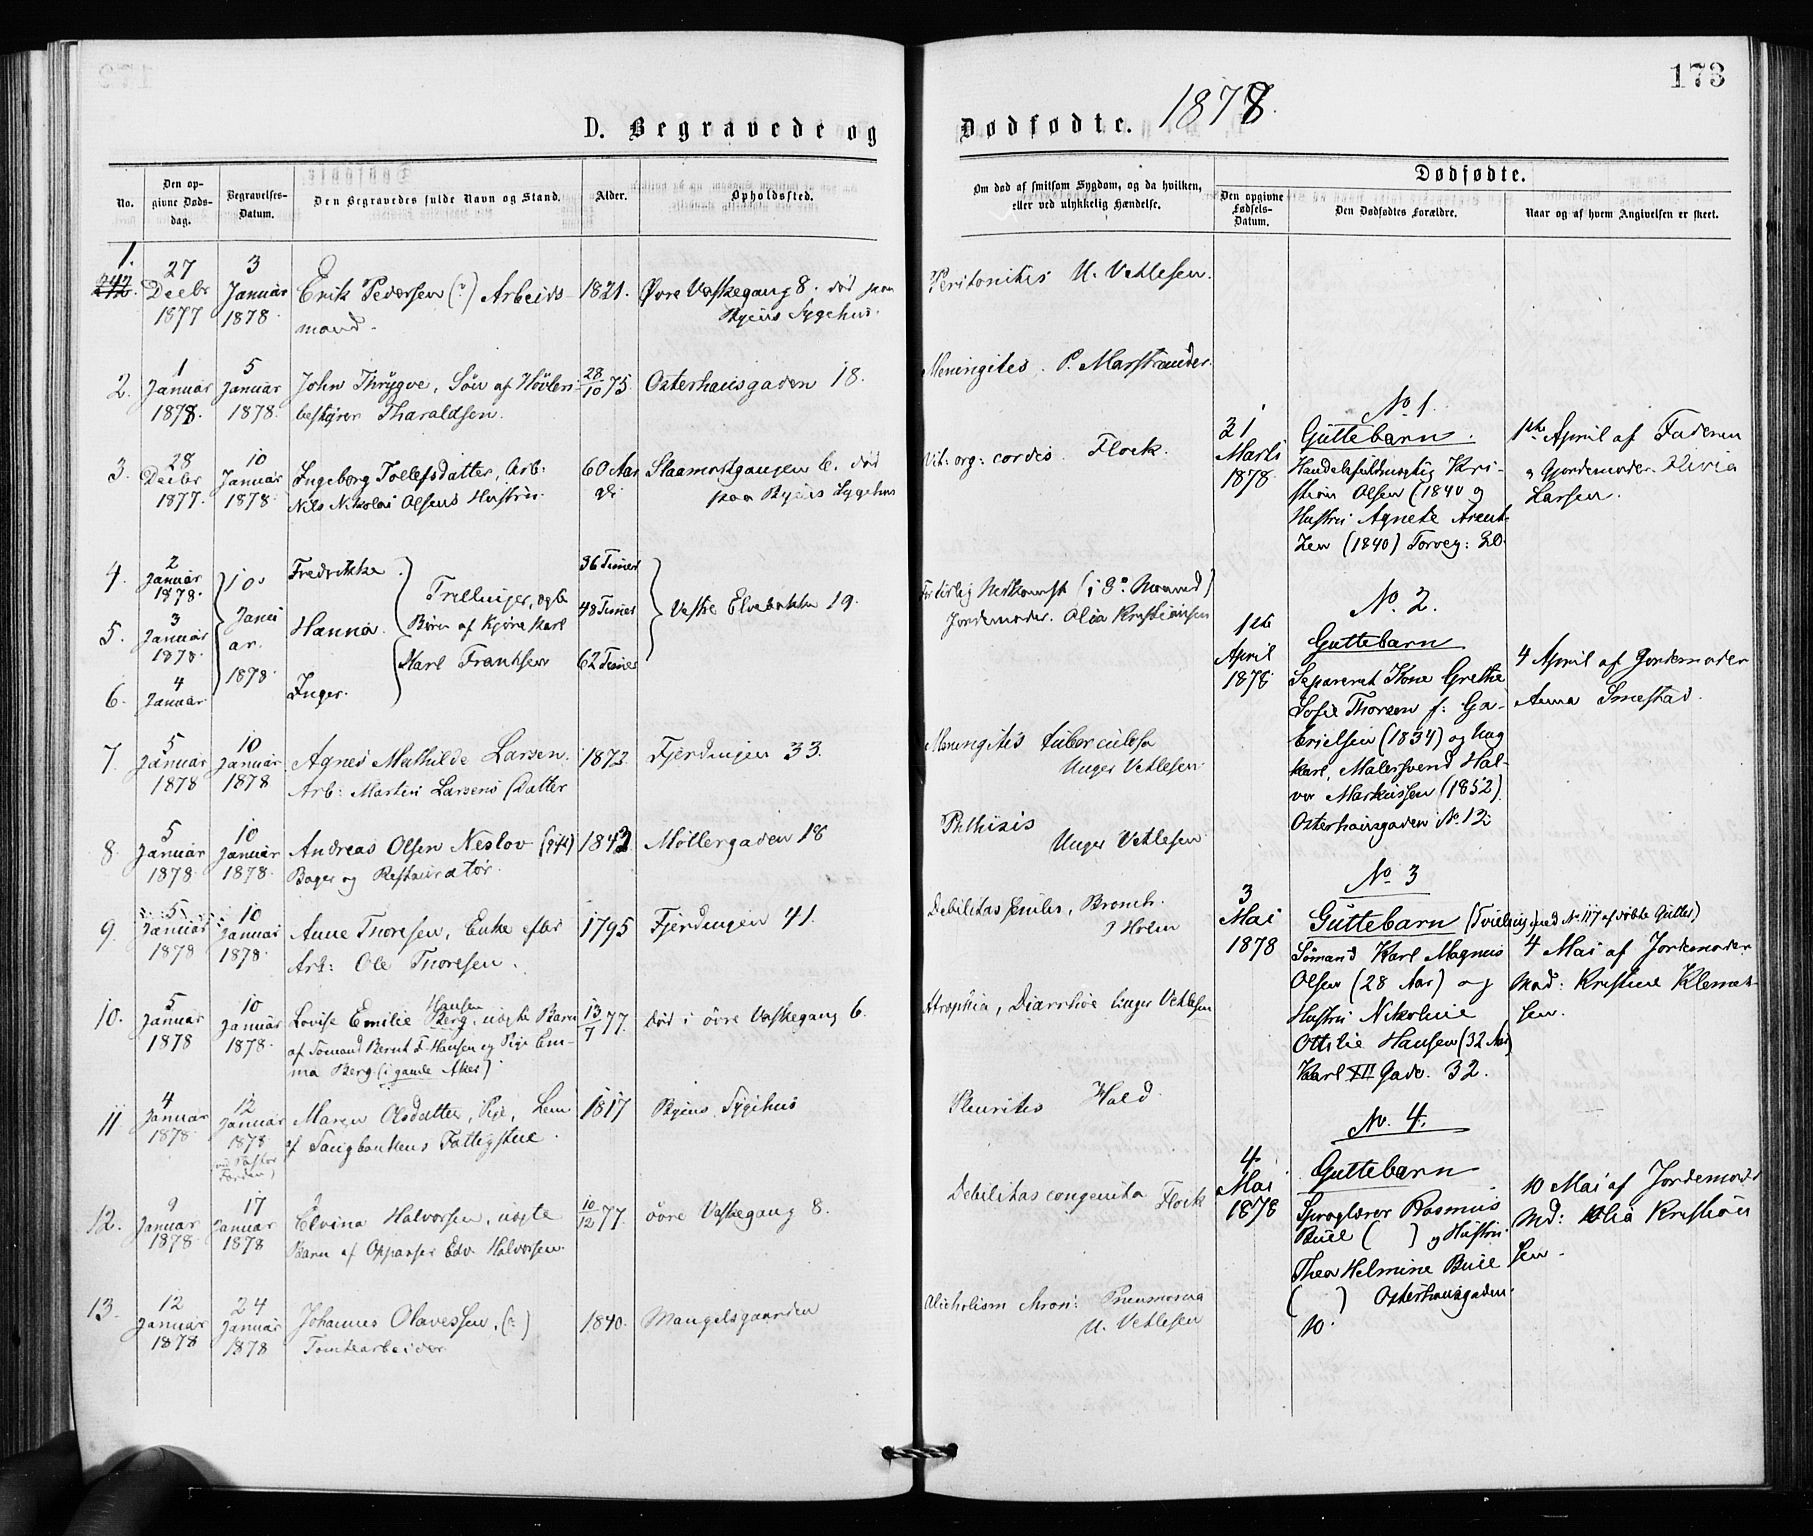 173
D. Begravede og Dødfødte. 1878.
No.
Den op-
givne Døds-
dag.
Begravelses-
Datum.
Den Begravedes fulde Navn og Stand.
Alder.
Opholdssted.
Om død af smitsom Sygdom, og da hvilken,
eller ved ulykkelig Hændelse.
Dødfødte.
Den opgivne
Fødsels-
Datum.
Den Dødfødtes Forældre.
Naar og af hvem Angivelsen er skeet.
1.
242.
27
Decbr
1877
3
Januar
1878.
Erik Pedersen (?) Arbeids-
mand.
1821.
Øvre Vaskegang 8. død paa
Byens Sygehus.
Peritonitis U. Vetlesen.
2.
1
Januar
1878.
5
Januar
1878.
John Thrygve, Søn af Høvleri-
bestyrer Tharaldsen.
28/10 75.
Osterhausgaden 18.
Meningites. P. Marstrander.
3.
28
Decbr
1877.
10
Januar
1878.
Ingeborg Tollefsdatter, Arb:
Nils Nikolai Olsens Hustru
60 Aar
Slaamotgangen 6. død
paa Byens Sygehus
Vit: org: cordis. Flock.
4.
2
Januar
1878.
Fredrikke.
36 Timer
5.
3
Januar
1878.
Hanna.
48 Timer
6.
4
Januar
Inger.
62 Timer
10
Janu
ar.
1878.
Trillinger, ægte
Børn af Kjørekarl
Karl Frantsen
Vestre Elvebakke 19.
For tidlig Nedkomst (i 8de Maaned)
Jordemoder Olia Kristiansen
7.
5
Januar
1878
10
Januar
1878
Agnes Mathilde Larsen.
Arb: Martin Larsens Datter
1872.
Fjerdingen 33.
Meningitis tuberculosa
Unger Vetlesen
8.
5
Januar
1878.
10
Januar
1878.
Andreas Olsen Neslov (gift)
Bager og Restauratør.
1843
Møllergaden 18
Phthisis
Unger Vetlesen
9.
5
Januar
1878
10
Januar
1878.
Anne Thoresen, Enke efter
Arb: Ole Thoresen.
1795
Fjerdingen 41.
Debilitas senilis, Bronch.
J Holm
10.
5
Januar
1878
10
Januar
1878.
Lovise Emilie Hansen
Berg, uægte Barn
af Sømand Bernt F. Hansen og Pige Em-
ma Berg (i gamle Aker)
13/7 77.
død i øvre Vaskegang 6.
Atrophia, Diarrhoe Unger Vetlesen
11
4
Januar
1878.
12
Januar
1878
Maren Olsdatter, Pige, Lem
af Sangbankens Fattigstue.
1817
Byens Sygehus
Pleurites Hald.
12.
9
Januar
1878
17
Januar
1878
Elvina Halvorsen, uægte
Barn af Oppasser Edv. Halvorsen.
10/12 77.
øvre Vaskegang 8.
Debilitas congenita Flock
13.
12
Januar
1878
24
Januar
1878
Johannes Olavessen, (?)
Tomtearbeider
1840.
Mangelsgaarden
Alcoholism chron: Pneumonia
U. Vetlesen
No 1.
31
Marts
1878.
Guttebarn.
Handelsfuldmægtig Kri-
stian Olsen (1840 og
Hustru Agnete Arent-
zen (1840) Torveg: 20.
1ste April af Faderen
og Gjordemoder Livia
Larsen.
No. 2.
1ste
April
1878
Guttebarn
Separeret Kone Grethe
Sofie Thorsen f: Ga-
brielsen (1834) og Ung
karl, Malersvend Hal-
vor Markussen (1852).
Osterhausgaden No. 12
4 April af Gordemoder
Anna Smestad.
No 3
3
Mai
1878
Guttebarn (Tvilling med No. 117 af døbte Gutter)
Sømand Karl Magnus
Olsen (28 Aar) og
Hustru Nikoline
Ottilie Hansen (32 Aar)
Karl XII Gade. 32.
4 Mai af Jordemoder
Mad: Kristine Klemet-
sen.
No. 4.
4
Mai
1878
Guttebarn
Sproglærer Rasmus
Buie ( ) og Hustru
Thea Helmine Buie
( ) Osterhausgaden.
10.
10 Mai af Jordemoder
Md: Olia Kristian
sen.